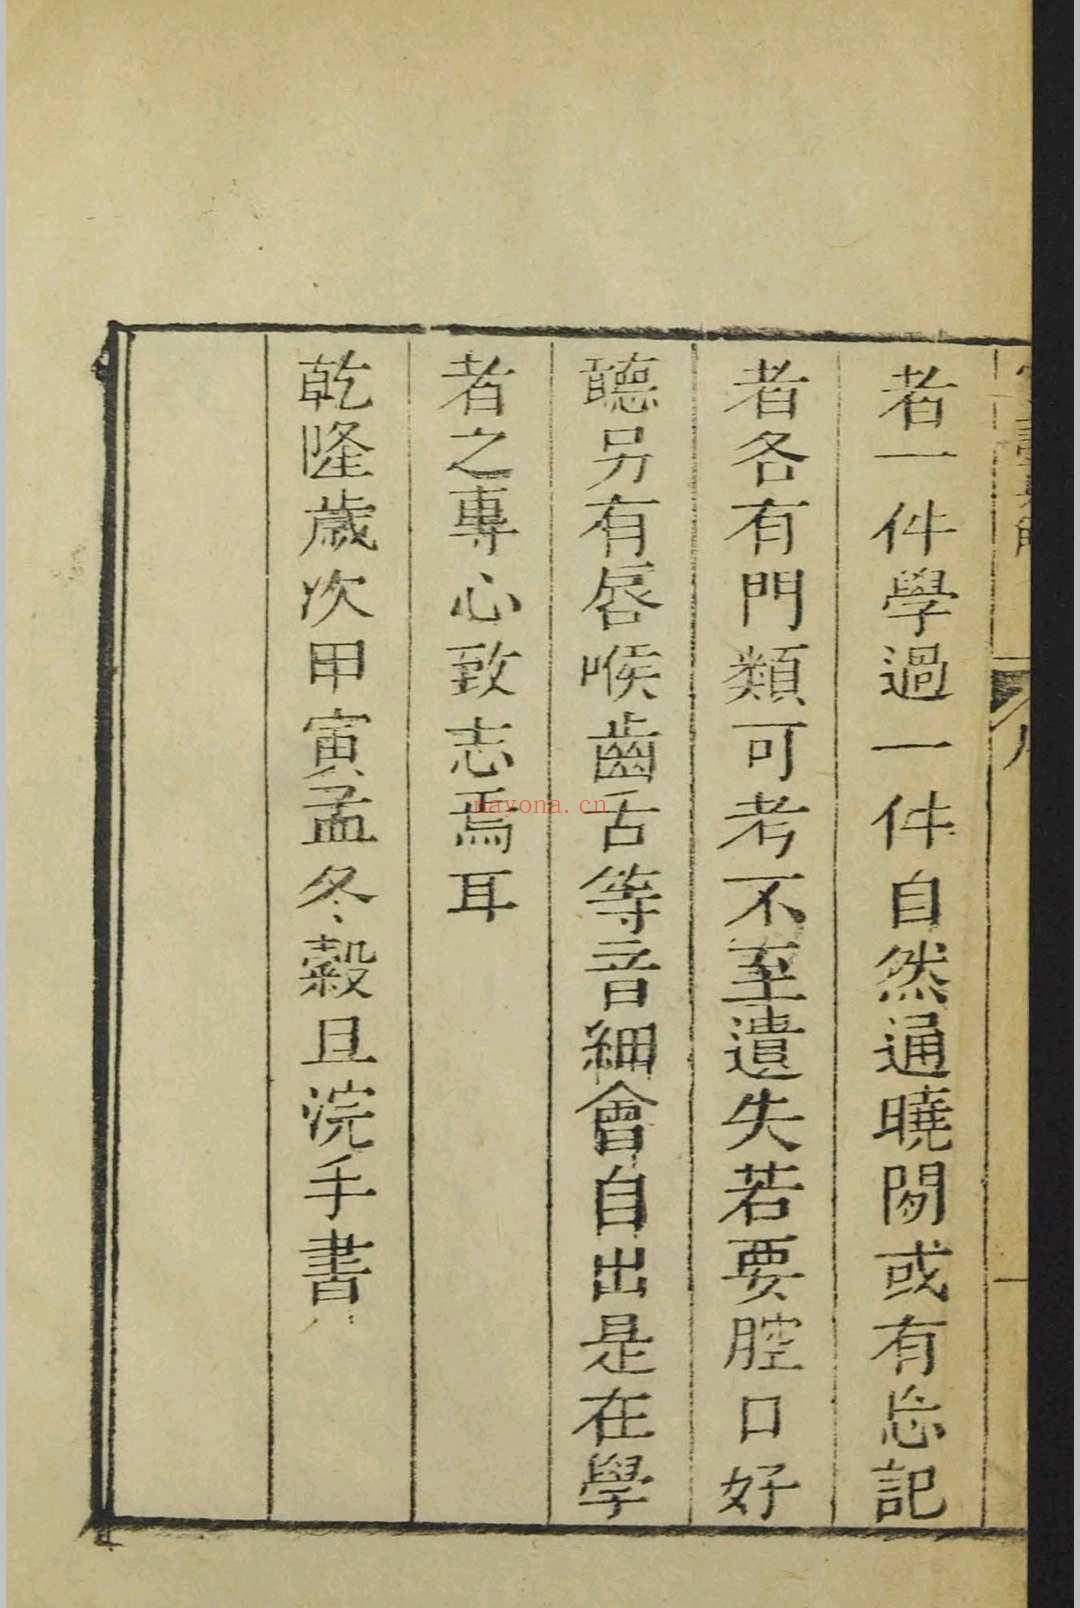 者一件學過一件自然通曉閱或有忘記
者各有門類可考不至遺失若要腔口好
聽另有唇喉齒舌等音細會自出是在學
者之專心致志焉耳
乾隆歲次甲寅孟冬穀旦浣手書
nayona.cn